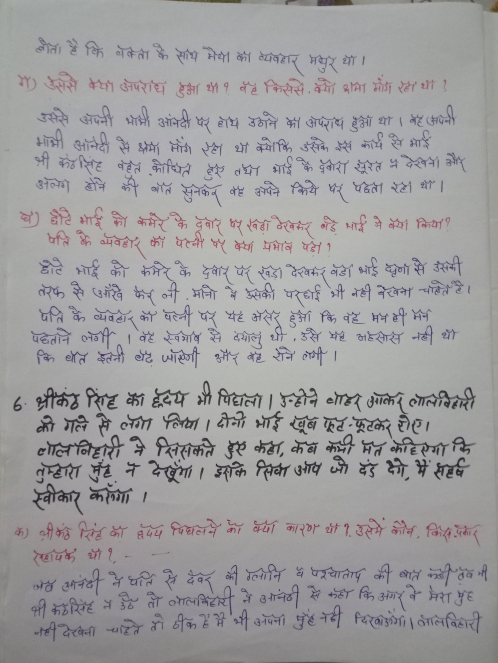 होता है कि वक्ता के साथ भैया का व्यवहार मधुर था।
ग) उससे क्या अपराध हुआ था? वह किससे क्यों क्षमा माँग रहा था?
उससे अपनी भाभी आनंदी पर हाथ उठाने का अपराध हुआ था। वह अपनी
भाभी आनंदी से क्षमा माँग रहा था क्योंकि उसके इस कार्य से भाई
श्री कंठसिंह बहुत क्रोधित हुए तथा भाई के द्वारा सूरत न देखना और
अलग होने की बात सुनकर वह अपने किये पर पछता रहा था।
घ) छोटे भाई को कमरे के द्वार पर खड़ा देखकर बड़े भाई ने क्या किया?
पति के व्यवहार का पत्नी पर क्या प्रभाव पड़ा?
छोटे भाई को कमरे के द्वार पर खड़ा देखकर बड़ा भाई घृणा से उसकी
तरफ से आँखे फेर ली, मानो वे उसकी परछाई भी नही देखना चाहते है।
पति के व्यवहार का पत्नी पर यह असर हुआ कि वह मन ही मन
पछताने लगी। वह स्वभाव से दयालु थी। उसे यह अहसास नही था
कि बात इतनी बढ़ जाएगी और वह रोने लगी।
6. श्रीकंठ सिंह का हृदय भी पिघला। उन्होने बाहर आकर लालबिहारी
को गले से लगा लिया। दोनो भाई खूब फूट-फूटकर रोए।
लालबिहारी ने सिसकते हुए कहा, अब कभी मत कहिएगा कि
तुम्हारा मुँह न देखूँगा। इसके सिवा आप जो दंड देंगे, मैं सहर्ष
स्वीकार करूँगा।
क) श्रीकंठ सिंह का हृदय पिघलने का क्या कारण था? उसमें कौन, किस प्रकार
सहायक था?
जब आनंदी ने पति से देवर की ग्लानि व पश्चाताप की बात कही तब भी
श्री कंठसिंह न उठे तो लालबिहारी ने आनंदी से कहा कि अगर वे मेरा मुँह
नही देखना चाहते तो ठीक है मैं भी अपना मुँह नही दिखाऊँगा। लालबिहारी